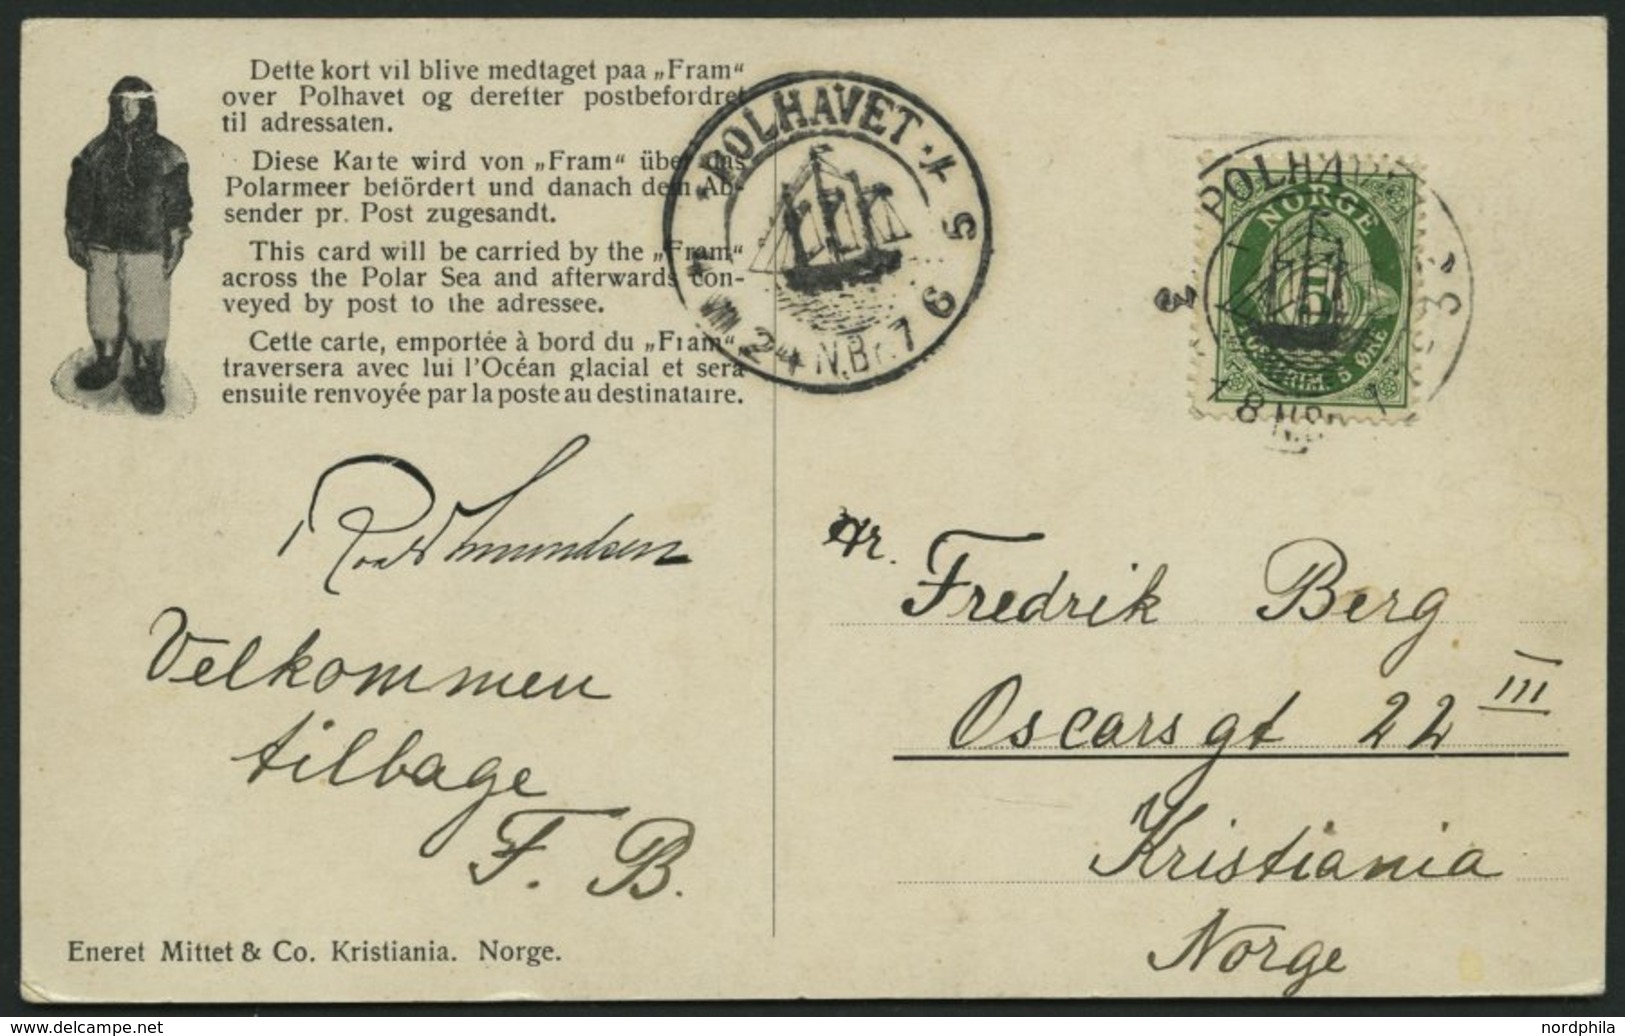 Dette kort vil blive medtaget paa „Fram“
over Polhavet og derefter postbefordret
til adressaten.
Diese Karte wird von „Fram“ über das
Polarmeer befördert und danach dem Ab-
sender pr. Post zugesandt.
This card will be carried by the „Fram“
across the Polar Sea and afterwards con-
veyed by post to the adressee.
Cette carte, emportée à bord du „Fram“,
traversera avec lui l'Océan glacial et sera
ensuite renvoyée par la poste au destinataire.
POLHAVET
24 N.Br. 7
POLHAVET
NORGE
5
Roald Amundsen
Velkommen
tilbage
F. B.
Hr. Fredrik Berg
Oscarsgt 22 III
Kristiania
Norge
Eneret Mittet & Co. Kristiania. Norge.
www.delcampe.net
nordphila